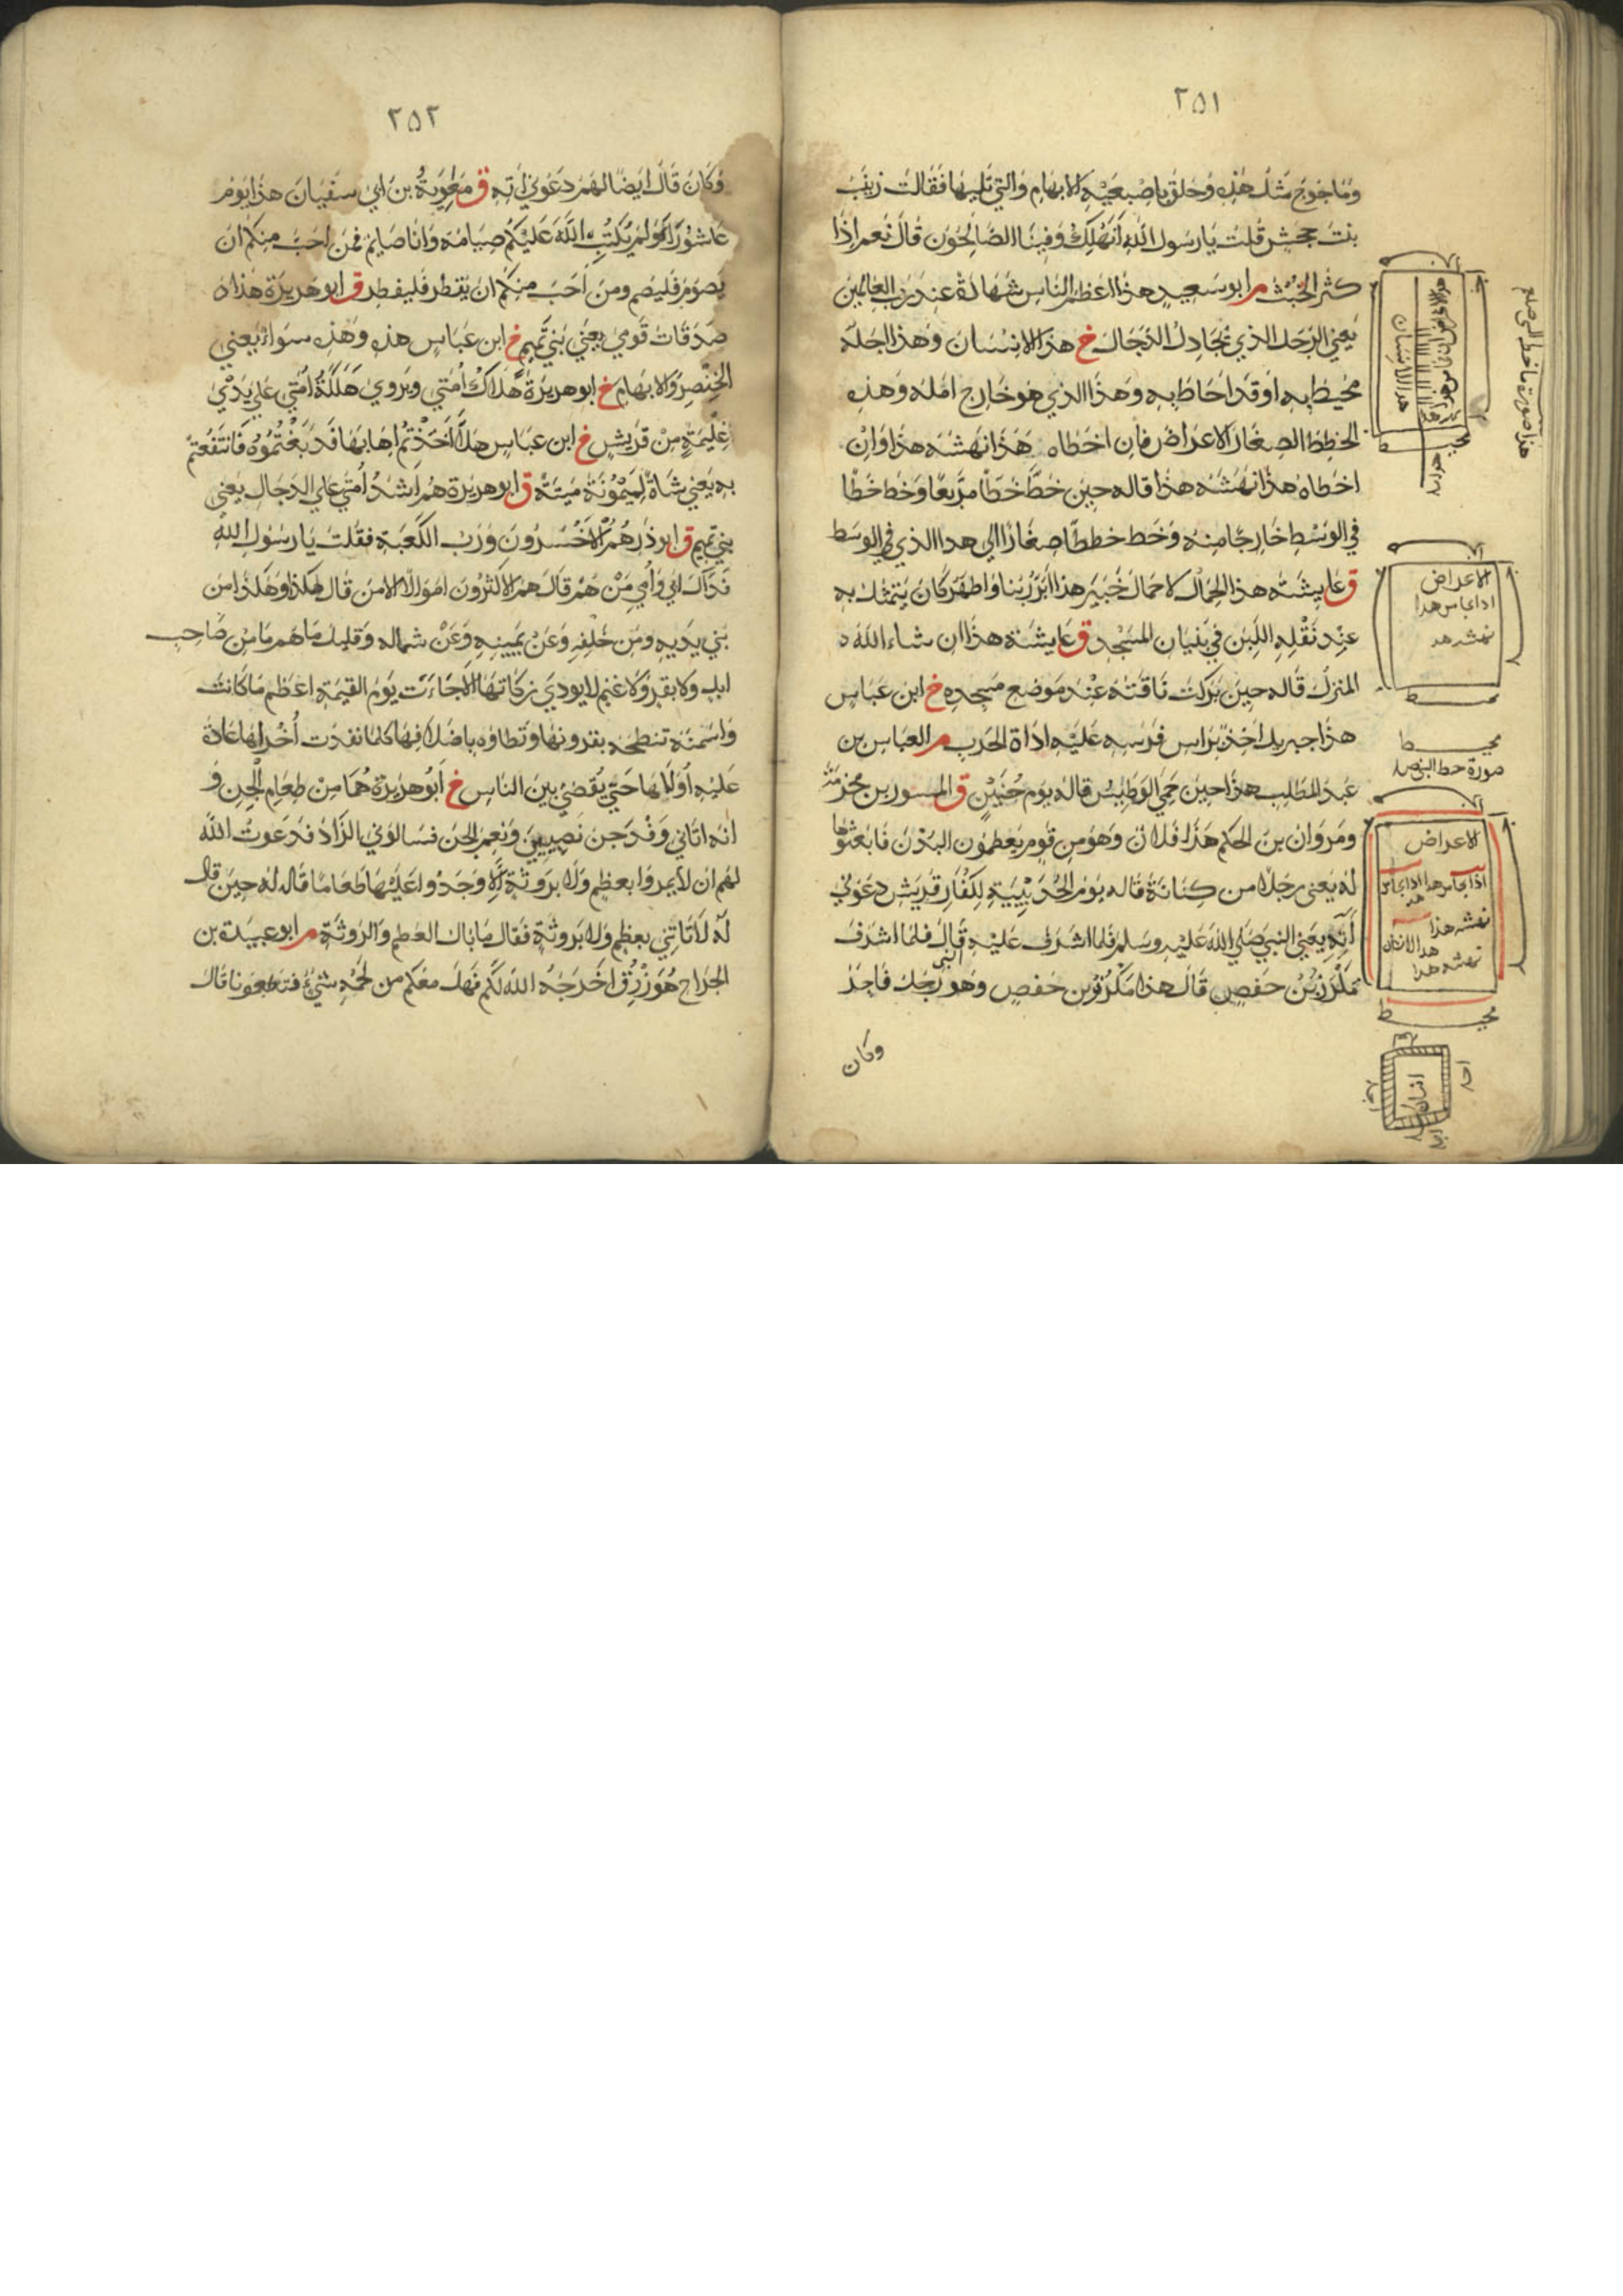 ٢٥١
وماجوج مثل هذه وحلق باصبعيه الابهام والتي تليها فقالت زينب
بنت جحش قلت يا رسول الله انهلك وفينا الصالحون قال نعم اذا
كثر الخبث م ابو سعيد هذا اعظم الناس شهادة عند رب العالمين
يعني الرجل الذي يجادل الدجال خ هذا الانسان وهذا اجله
محيط به او قد احاط به وهذا الذي هو خارج امله وهذه
الخطط الصغار الاعراض فان اخطاه هذا نهشه هذا وان
اخطاه هذا نهشه هذا قاله حين خط خطا مربعا وخط خطا
في الوسط خارجا منه وخط خططا صغارا الى هذا الذي في الوسط
ق عايشة هذا الحمال لا حمال خيبر هذا ابر ربنا واطهر كان يتمثل به
عند نقله اللبن في بنيان المسجد ق عايشة هذا ان شاء الله
المنزل قاله حين بركت ناقته عند موضع مسجده خ ابن عباس
هذا جبريل اخذ براس فرسه عليه اداة الحرب م العباس بن
عبد المطلب هذا حين حمي الوطيس قاله يوم حنين ق المسور بن مخرمة
ومروان بن الحكم هذا فلان وهو من قوم يعظمون البدن فابعثوها
له يعنى رجلا من كنانة قاله يوم الحديبية لكفار قريش دعوني
آته يعني النبي صلي الله عليه وسلم فلما اشرف عليه قال النبى فلما اشرف
مكرز بن حفص قال هذا مكرز بن حفص وهو رجل فاجر
وكان
هذا صورة ما خط النبي صلعم
هذا الانسان
محيط
الاعراض
نهشه هذ
محيط
محيط
صورة خط النبي صلعم
الاعراض
نهشه هذا
هذا الانسان
نهشه هذا
محيط
انسان
٢٥٢
وكان قال ايضا لهم دعوني آته ق معوية بن ابي سفيان هذا يوم
عاشوراء ولم يكتب الله عليكم صيامه وانا صايم فمن احب منكم ان
يصوم فليصم ومن احب منكم ان يفطر فليفطر ق ابو هريرة هذه
صدقات قومي يعني بني تميم خ ابن عباس هذه وهذه سواء يعني
الخنصر والابهام خ ابو هريرة هلاك أمتي ويروي هلكة أمتي علي يدي
غليمة من قريش خ ابن عباس هلا اخذتم اهابها فدبغتموه فانتفعتم
به يعني شاة لميمونة ميتة ق ابو هريرة هم اشد أمتي علي الدجال يعني
بني تميم ق ابو ذر هم الاخسرون ورب الكعبة فقلت يا رسول الله
فداك ابي وأمي من هم قال هم الاكثرون اموالا الا من قال هكذا وهكذا من
بين يديه ومن خلفه وعن يمينه وعن شماله وقليل ما هم ما من صاحب
ابل ولا بقر ولا غنم لا يودي زكاتها الا جاءت يوم القيمة اعظم ما كانت
واسمنه تنطحه بقرونها وتطاوه باضلافها كلما نفدت أخراها عادة
عليه أولاها حتي يقضي بين الناس خ ابو هريرة هما من طعام الجن و
انه اتاني وفد جن نصيبين ونعم الجن فسالوني الزاد فدعوت الله
لهم ان لا يمروا بعظم ولا بروثة الا وجدوا عليها طعاما قاله له حين قال
له لا تاتيني بعظم ولا بروثة فقال ما بال العظم والروثة م ابو عبيدة بن
الجراح هو رزق اخرجه الله لكم فهل معكم من لحمه شيء فتطعمونا قال